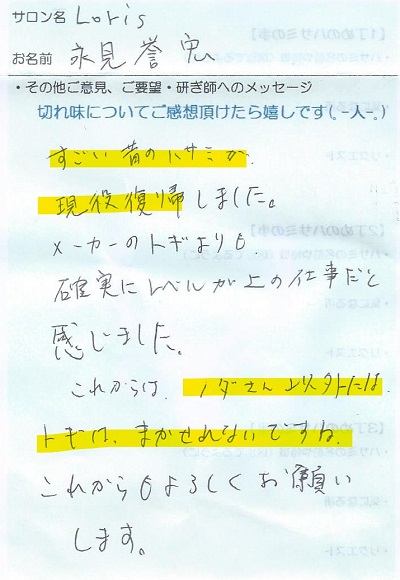 サロン名 Loris
お名前 永見誉宏
・その他ご意見、ご要望・研ぎ師へのメッセージ
切れ味についてご感想頂けたら嬉しです(。-人-。)
すごい昔のハサミが
現役復帰しました。
メーカーのトギよりも
確実にレベルが上の仕事だと
感じました。
これからは、ノダさん以外には
トギは、まかせれないですね。
これからもよろしくお願い
します。